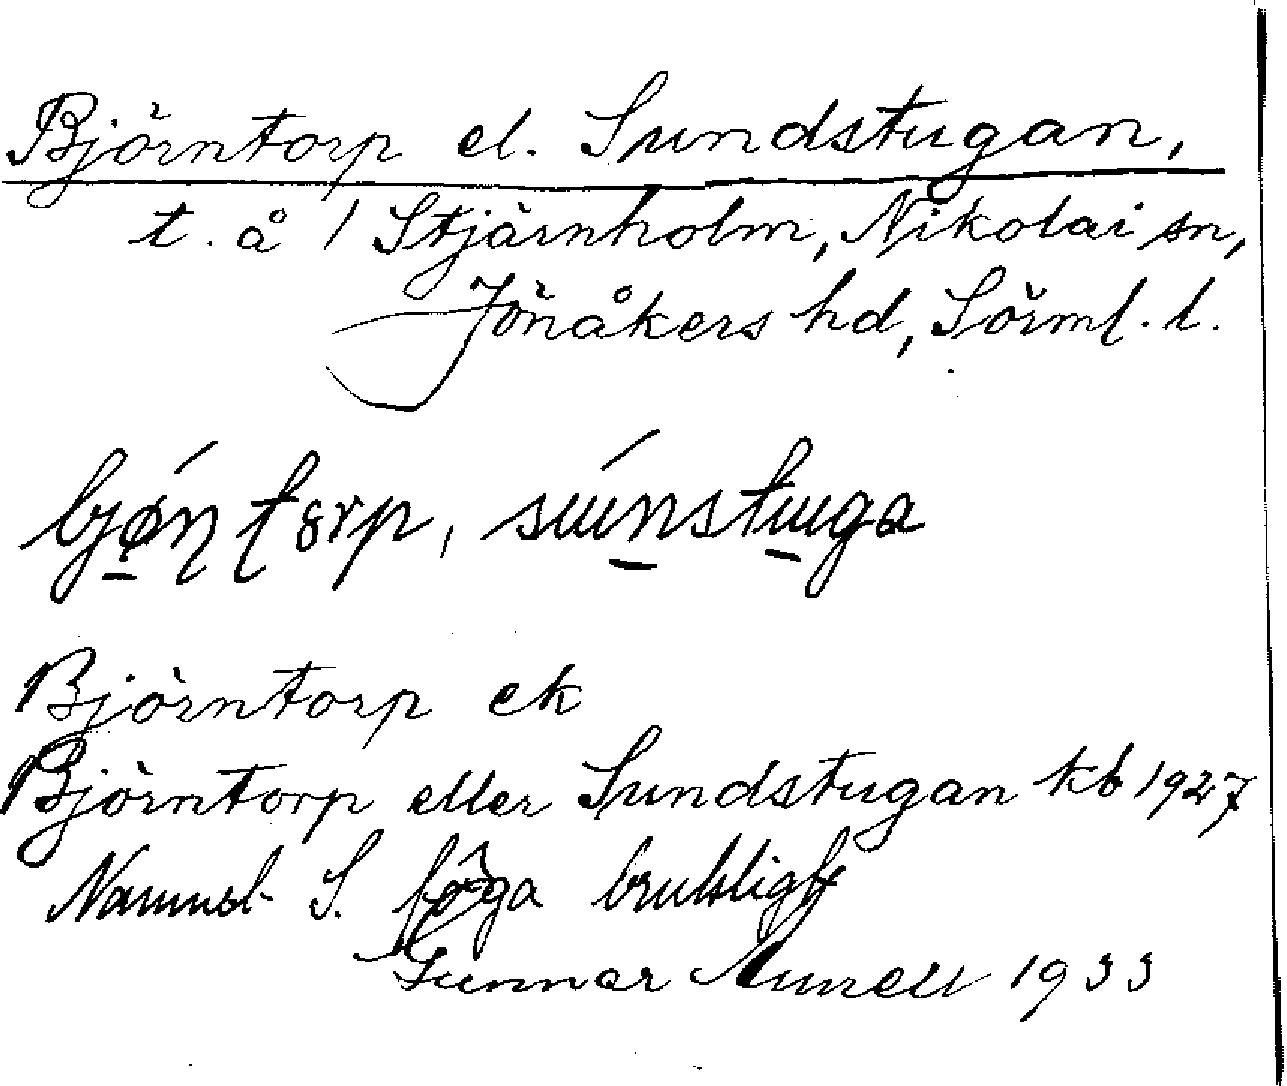 Björntorp el. Sundstugan,
t. å 1 Stjärnholm, Nikolai sn,
Jönåkers hd, Sörml. l.
bjǿn torp, súnstuga
Björntorp ek
Björntorp eller Sundstugan kb 1927
Namnet S. föga brukligt
Gunnar 1933